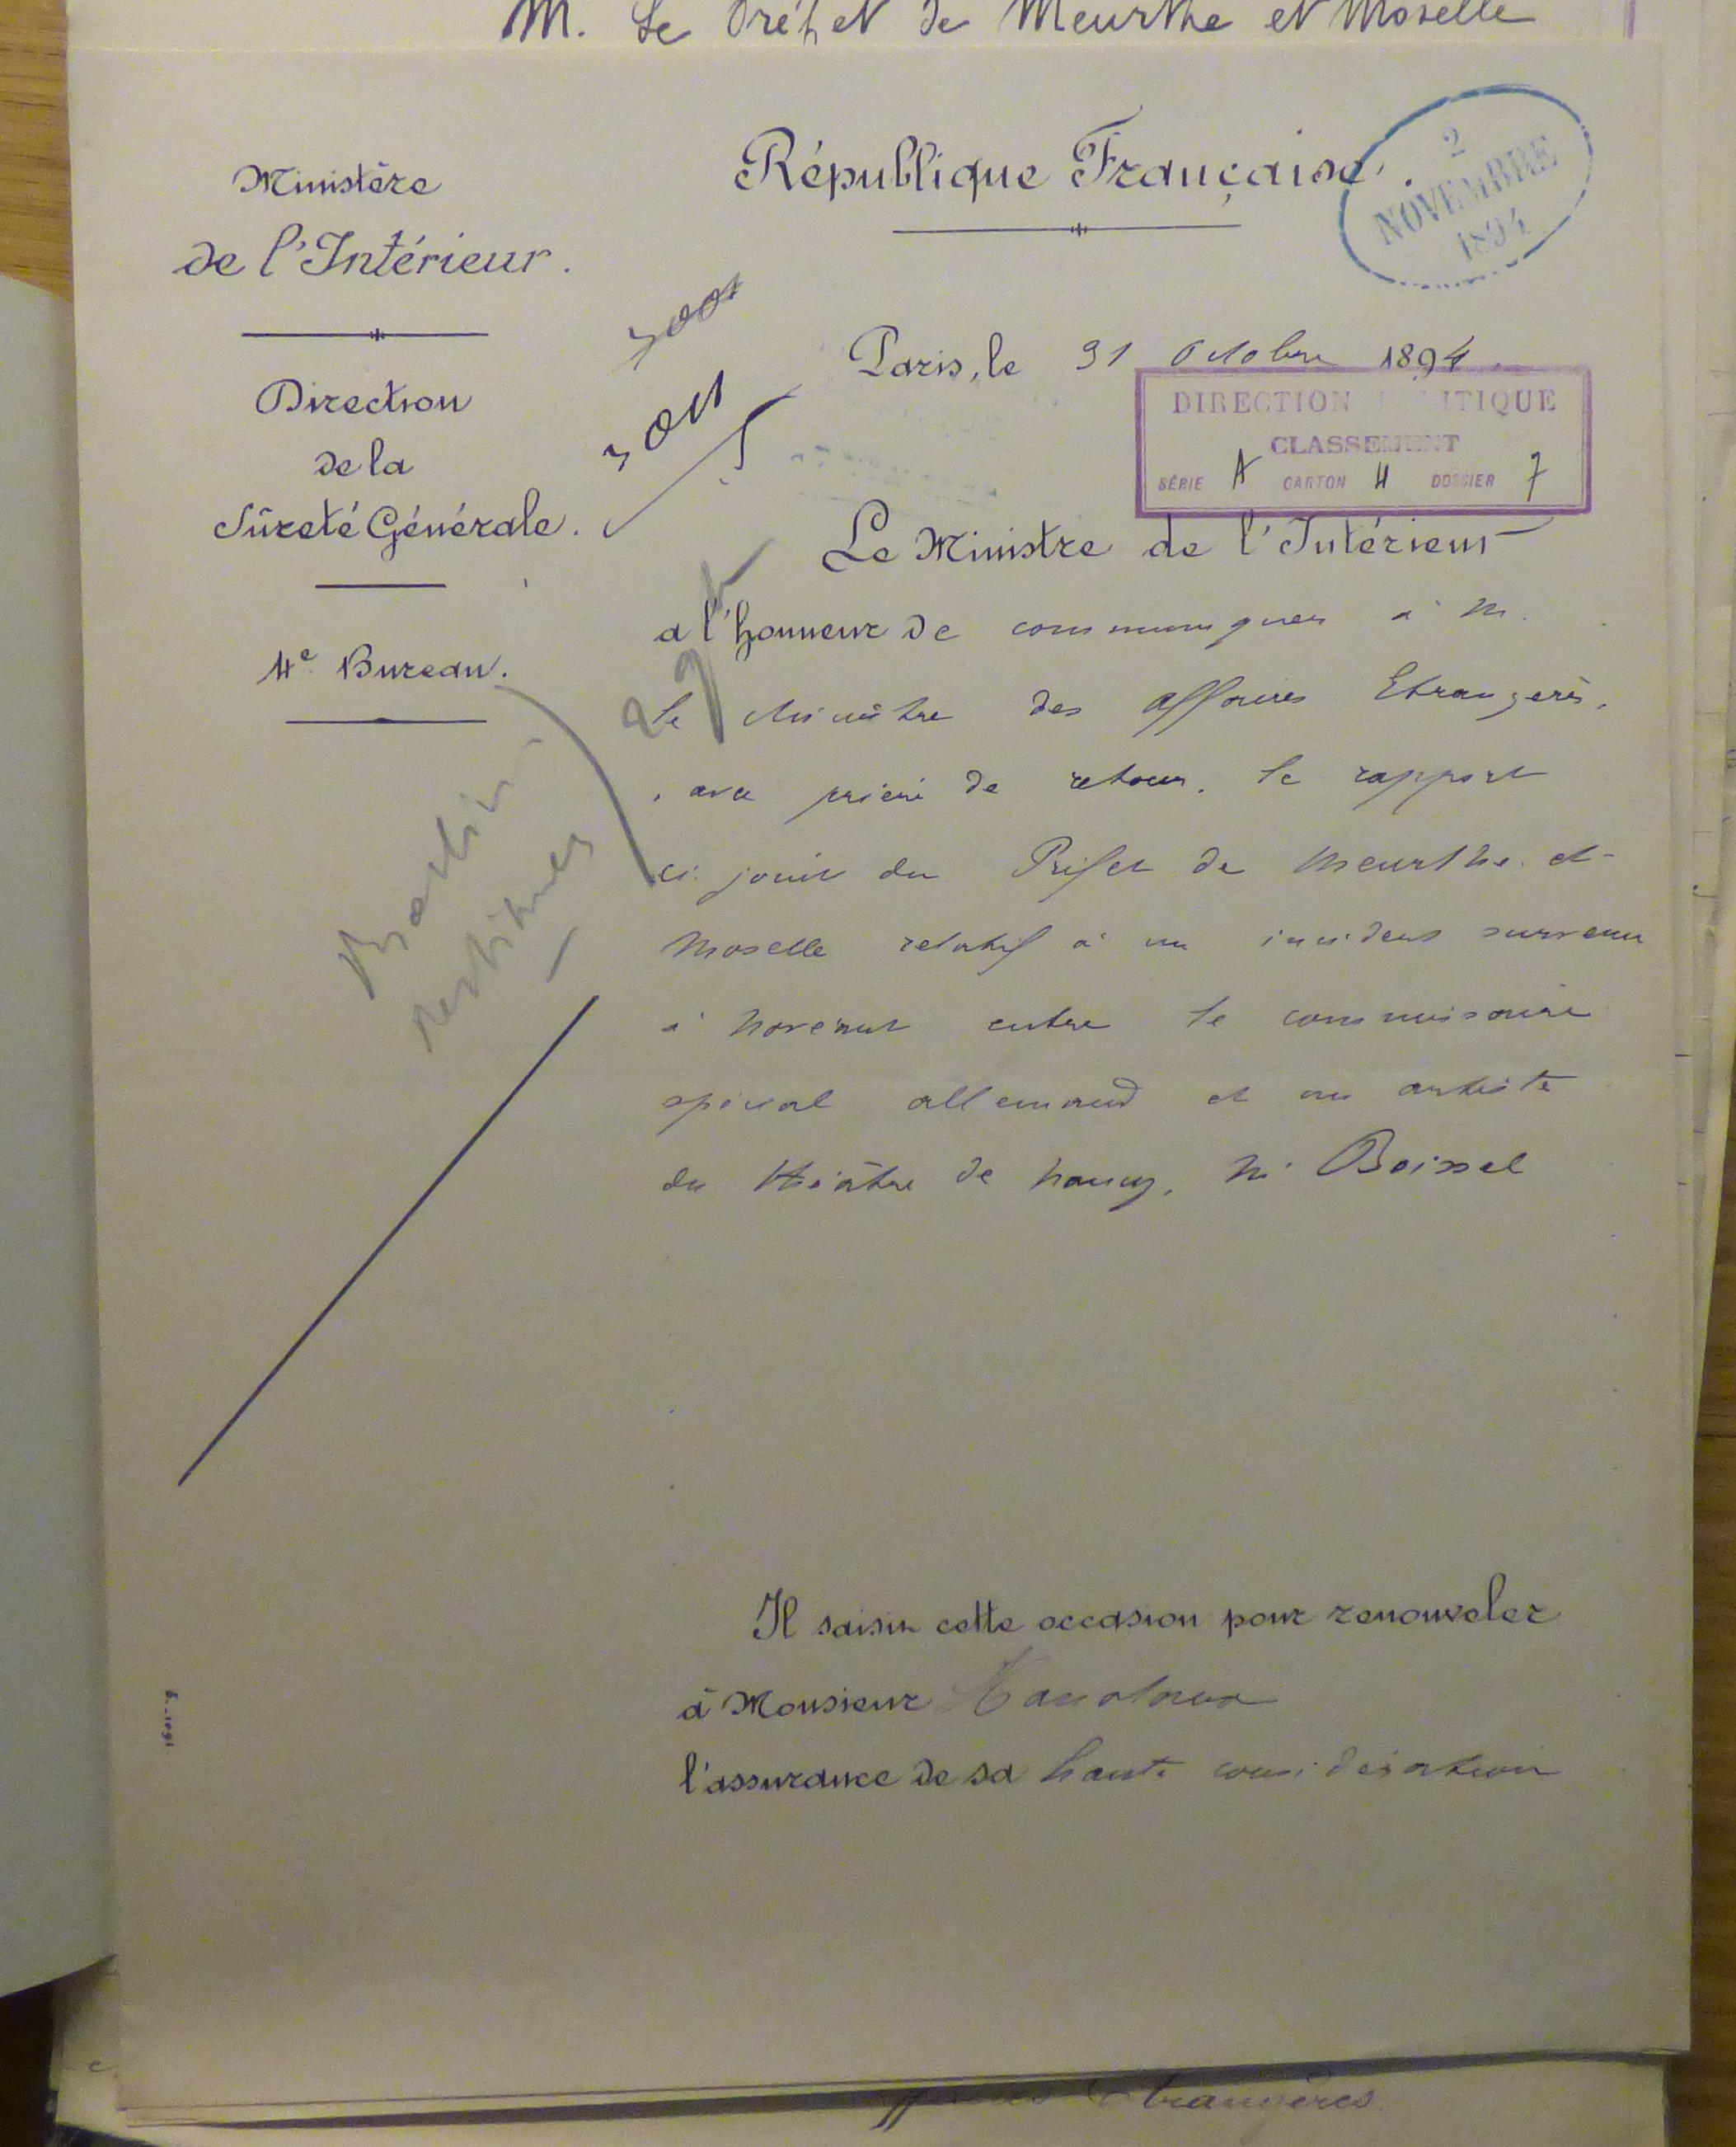 M. Le Préfet de Meurthe et Moselle
Ministère
de l'Intérieur.
Direction
de la
Sûreté Générale.
4e Bureau.
République Française.
2
NOVEMBRE
1894
Paris, le 31 Octobre 1894.
DIRECTION POLITIQUE
CLASSEMENT
SÉRIE A CARTON 4 DOSSIER 7
Le Ministre de l'Intérieur
a l'honneur de communiquer à M.
le Ministre des Affaires Etrangères,
, avec prière de retour, le rapport
ci-joint du Préfet de Meurthe et
Moselle relatif à un incident survenu
à Novéant entre le commissaire
spécial allemand et un artiste
du théâtre de Nancy, M. Boissel
Il saisit cette occasion pour renouveler
à Monsieur Hanotaux
l'assurance de sa haute considération
Affaires Etrangères